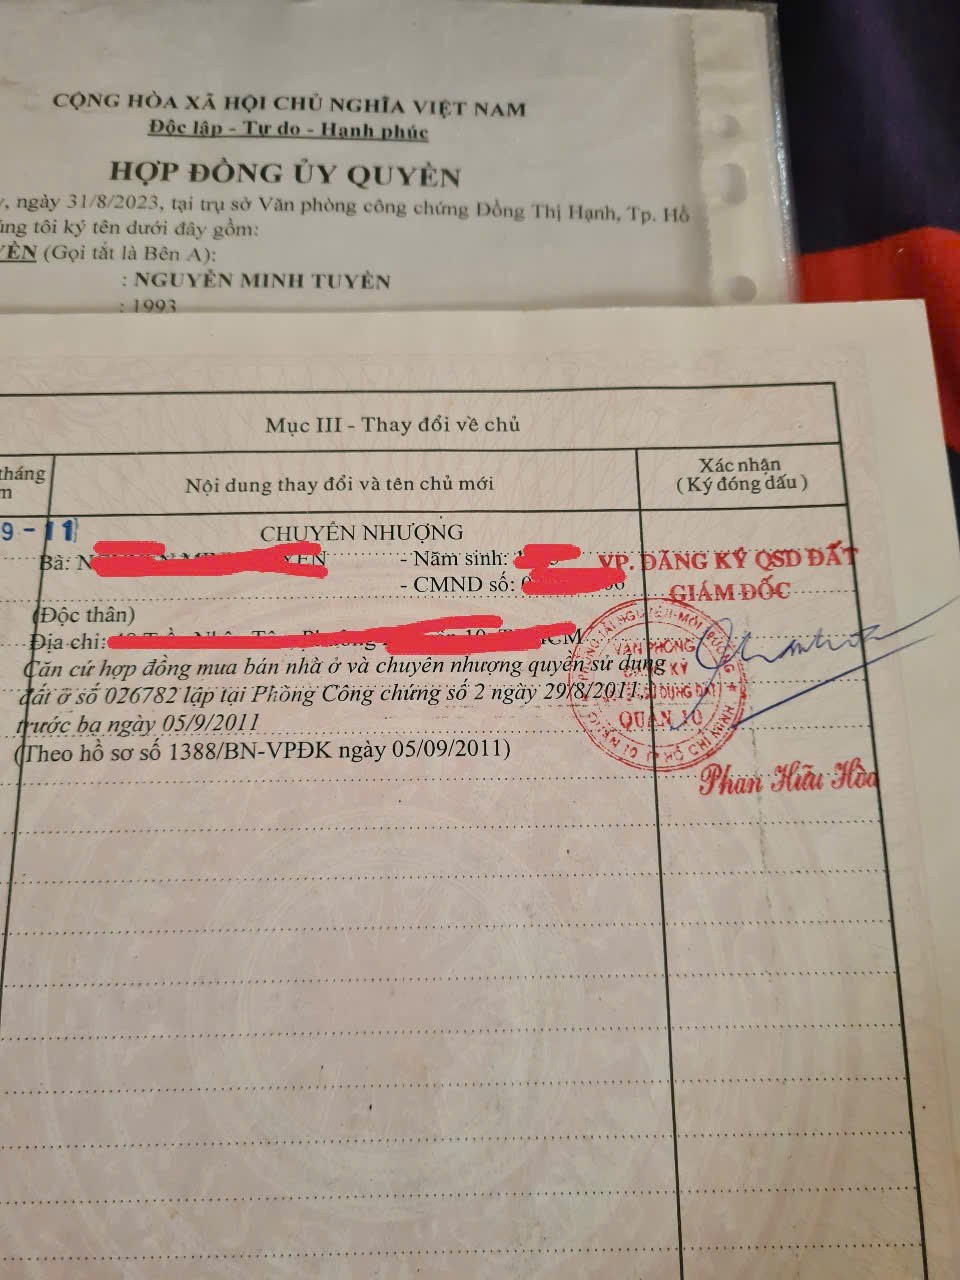 CỘNG HÒA XÃ HỘI CHỦ NGHĨA VIỆT NAM
Độc lập - Tự do - Hạnh phúc
HỢP ĐỒNG ỦY QUYỀN
, ngày 31/8/2023, tại trụ sở Văn phòng công chứng Đồng Thị Hạnh, Tp. Hồ
úng tôi ký tên dưới đây gồm:
YỀN (Gọi tắt là Bên A):
: NGUYỄN MINH TUYỀN
: 1993
Mục III - Thay đổi về chủ
tháng
m
Nội dung thay đổi và tên chủ mới
Xác nhận
(Ký đóng dấu)
9 - 11
CHUYỂN NHƯỢNG
Bà: N
- Năm sinh:
- CMND số:
VP. ĐĂNG KÝ QSD ĐẤT
GIÁM ĐỐC
(Độc thân)
Địa chỉ:
Căn cứ hợp đồng mua bán nhà ở và chuyển nhượng quyền sử dụng
đất ở số 026782 lập tại Phòng Công chứng số 2 ngày 29/8/2011,
trước bạ ngày 05/9/2011
(Theo hồ sơ số 1388/BN-VPĐK ngày 05/09/2011)
VĂN PHÒNG
ĐĂNG KÝ
SỬ DỤNG ĐẤT
QUẬN 10
Phan Hữu Hòa